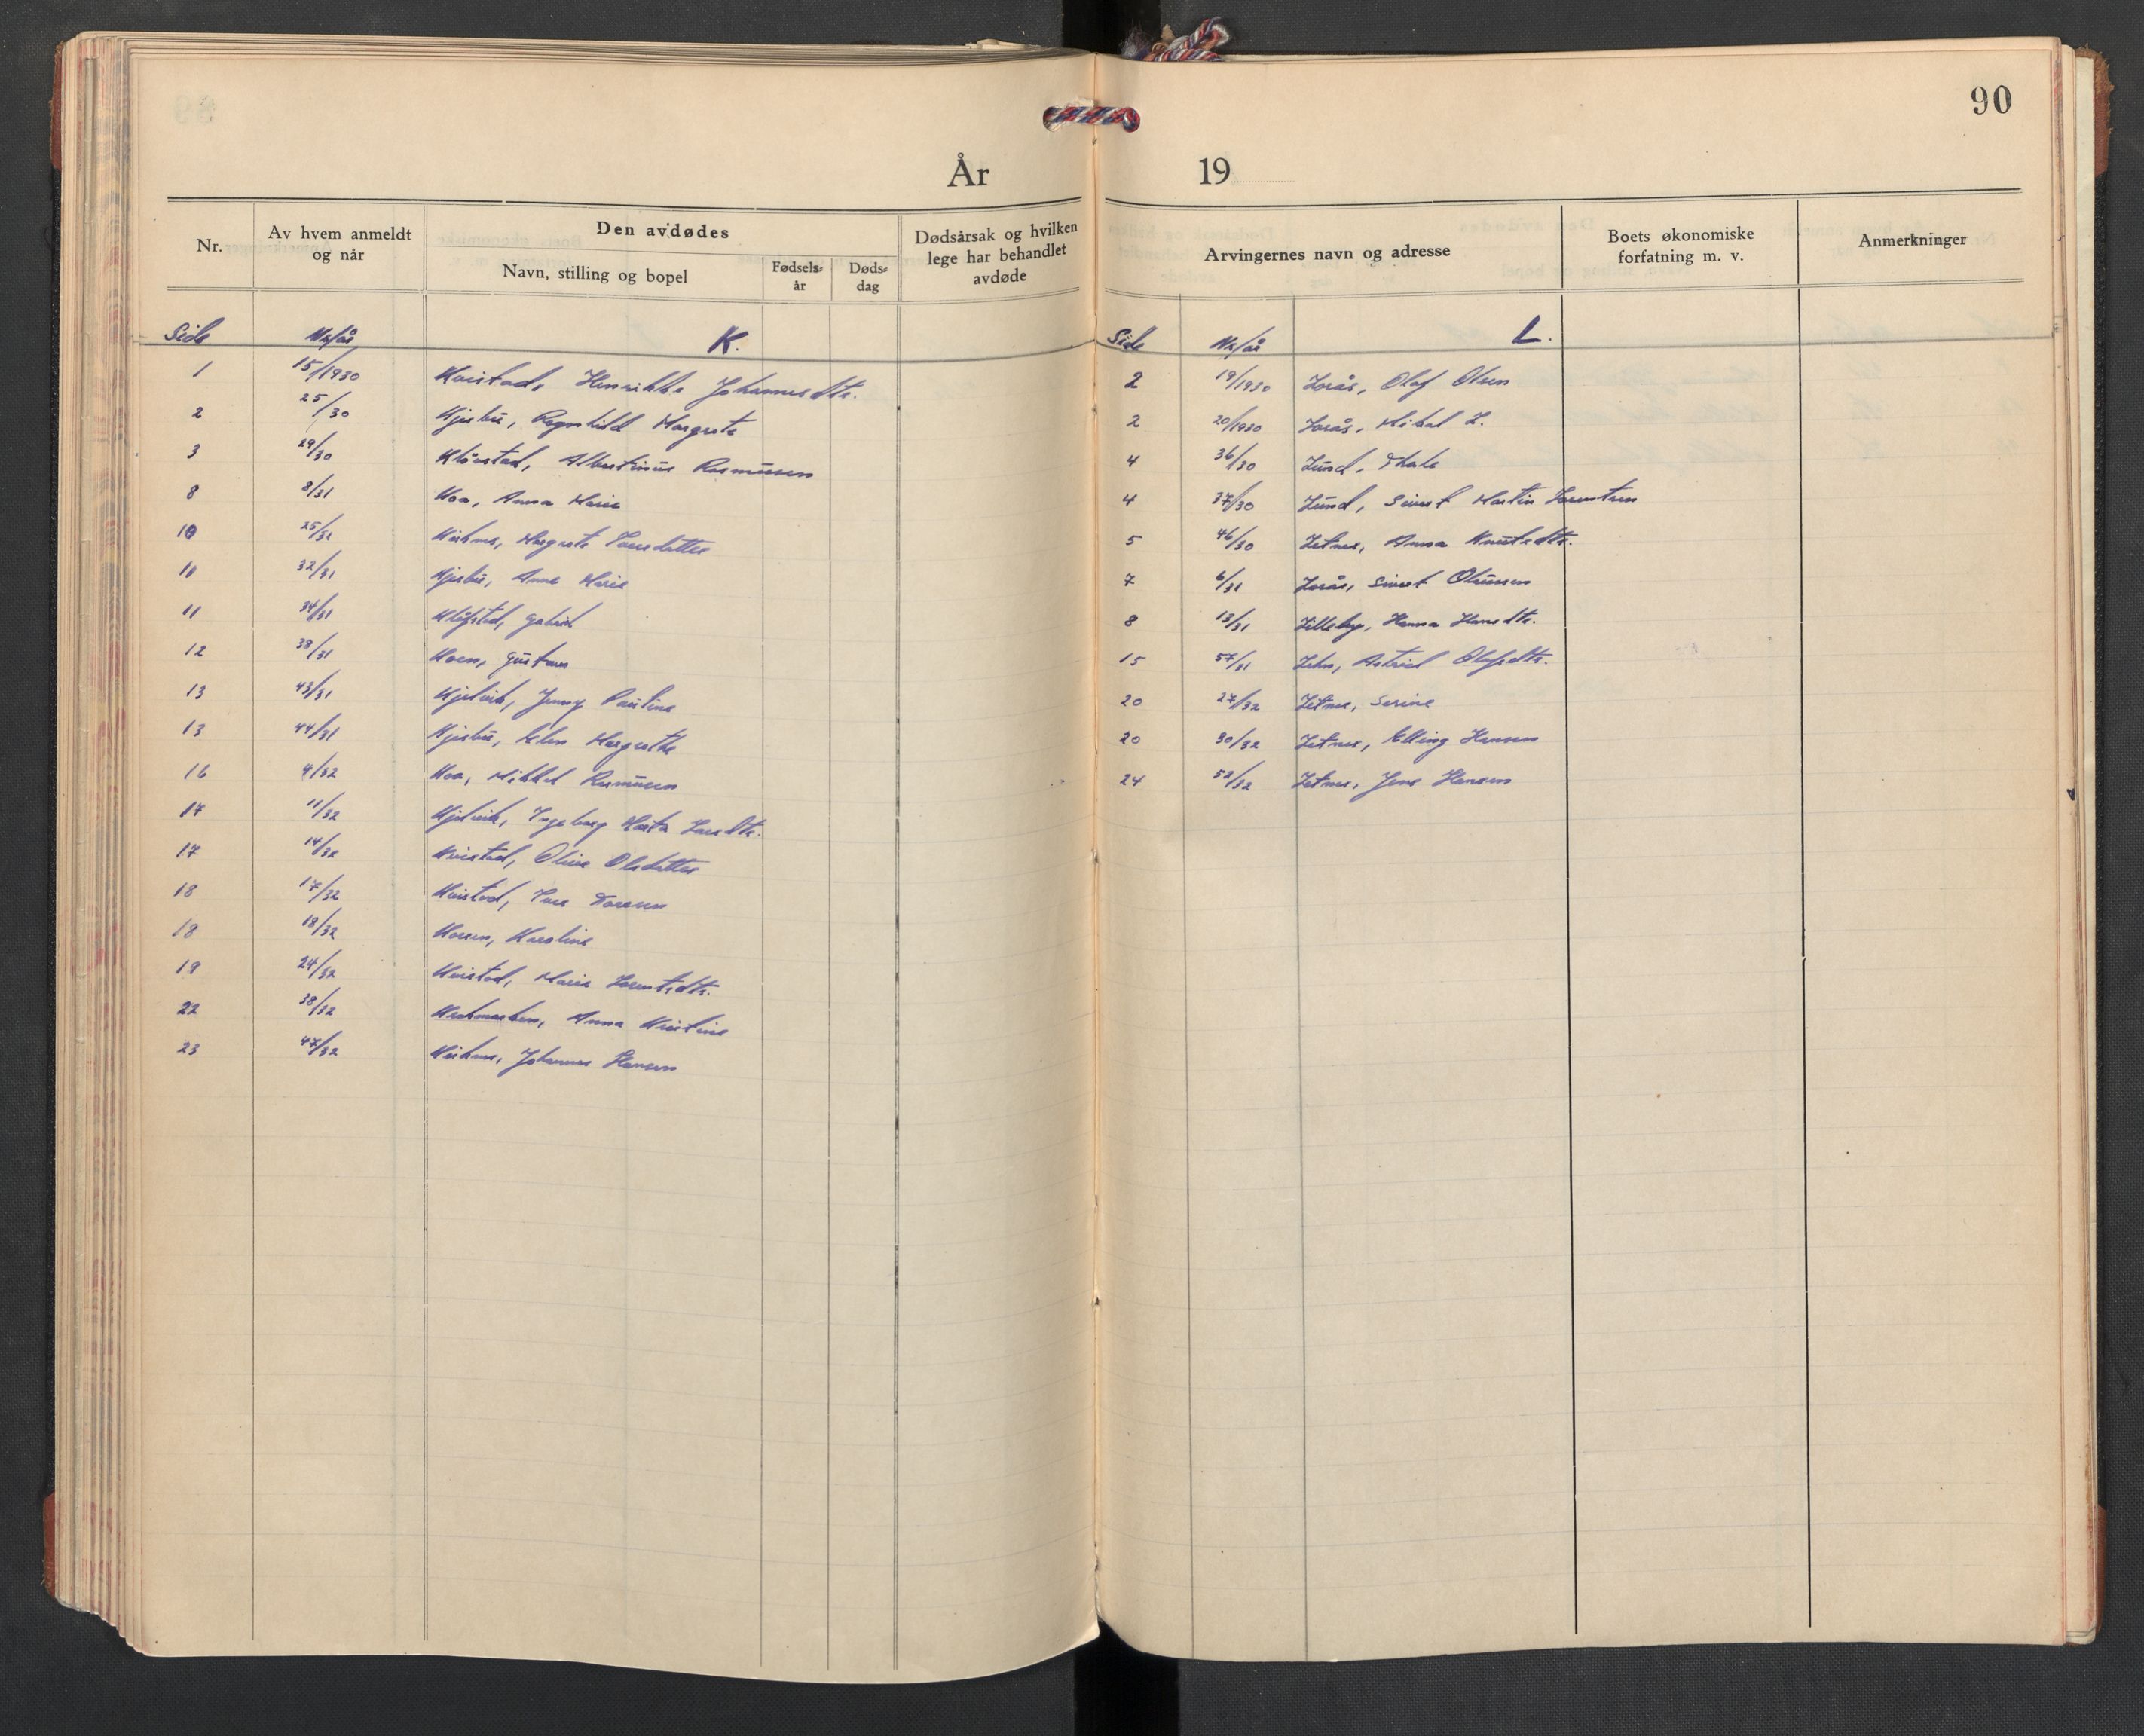 90
År 19
Nr.
Av hvem anmeldt
og når
Den avdødes
Navn, stilling og bopel
Fødsels-
år
Døds-
dag
Dødsårsak og hvilken
lege har behandlet
avdøde
Arvingernes navn og adresse
Boets økonomiske
forfatning m. v.
Anmerkninger
Side Nr/år K.
1 15/1930 Kvistad, Henrikke Johannesdtr.
2 25/30 Kjesbu, Ragnhild Margrete
3 29/30 Kløvstad, Albertinus Rasmussen
8 8/31 Koa, Anna Marie
10 25/31 Margrete Larsdatter
10 32/31 Kjesbu, Anne Marie
11 34/31 Gabriel
12 38/31 Koen, Gustav
13 43/31 Kjelvik, Jenny Pauline
13 44/31 Kjesbu, Elen Margrethe
16 4/32 Koa, Mikkel Rasmussen
17 11/32 Kjelvik, Ingeborg Marta
17 14/32 Kvistad, Oline Olsdatter
18 17/32 Kvistad,
18 18/32 Karoline
19 24/32 Kvistad, Marie Lorentsdtr.
22 38/32 Anna Kristine
23 47/32 Johannes Hansen
Side Nr/år L.
2 19/1930 Lorås, Olaf Olsen
2 20/1930 Lorås, Mikal L.
4 36/30 Lund, Thale
4 37/30 Lund, Sivert Martin Lorentsen
5 46/30 Letnes, Anna Knutsdtr.
7 6/31 Lorås, Sivert Olausen
8 13/31 Lilleby, Hanna Hansdtr.
15 57/31 Lehn, Astrid Olafsdtr.
20 27/32 Letnes, Serine
20 30/32 Letnes, Elling Hansen
24 52/32 Letnes, Jens Hansen